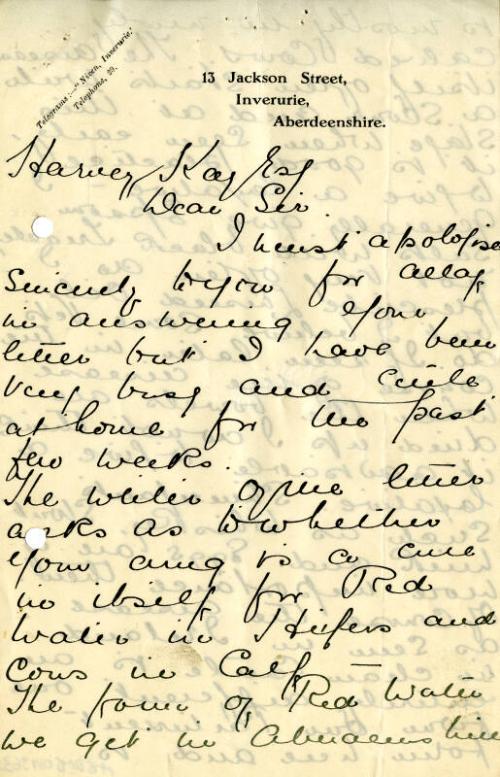 Telegrams:—"Niven, Inverurie."
Telephone, 29.
13 Jackson Street,
Inverurie,
Aberdeenshire.
Harvey Kay Esq
Dear Sir.
I must apologise
Sincerely to you for delay
in answering your
letter but I have been
very busy and little
at home for the past
few weeks.
The writer of the letter
asks as to whether
your drug is a cure
in itself for Red
Water in Heifers and
Cows in Calf.
The form of Red Water
we get in Aberdeenshire